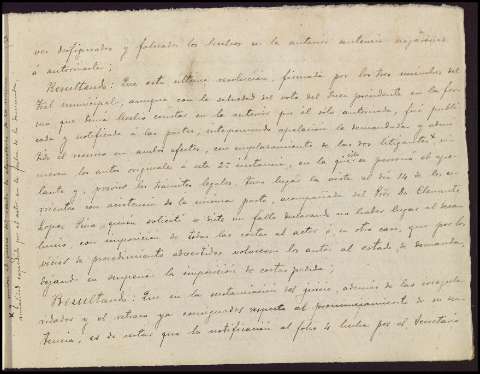 ver desfigurados y falseados los hechos en la anterior sentencia negándose
á autorizarla;
Resultando: Que esta última resolución, firmada por los tres miembros del
Tribunal municipal, aunque con la salvedad del voto del Juez presidente en la for-
ma que había hecho constar en la anterior por él sólo autorizada, fué publi-
cada y notificada á las partes, interponiendo apelación la demandada y admi-
tido el recurso en ambos efectos, con emplazamiento de los dos litigantes, vi-
nieron los autos originales á esta 2ª instancia, en la que se personó el ape-
lante y, previos los trámites legales, tuvo lugar la vista el día 14 de los co-
rrientes con asistencia de la misma parte, acompañada del Pdor. Dn. Clemente
López quien solicitó se dicte un fallo declarando no haber lugar al desa-
hucio, con imposición de todas las costas al actor ó, en otro caso, que por los
vicios de procedimiento advertidos volviesen los autos al estado de demanda,
dejando en suspenso la imposición de costas pedida;
Resultando: Que en la sustanciación del juicio, además de las irregula-
ridades y el retraso ya consignados respecto al pronunciamiento de su sen-
tencia, es de notar que la notificación al folio 4 hecha por el Secretario